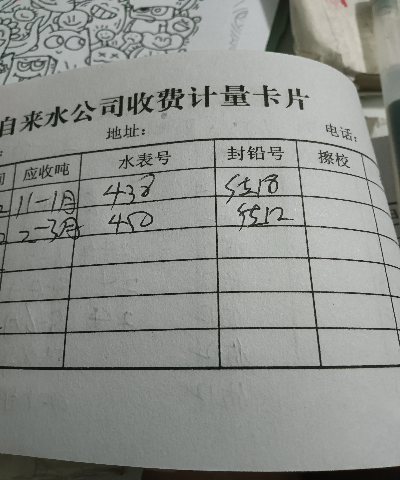 自来水公司收费计量卡片
地址： 电话：
应收吨 水表号 封铅号 擦校
11-1月 438 结18
2-3月 450 结12